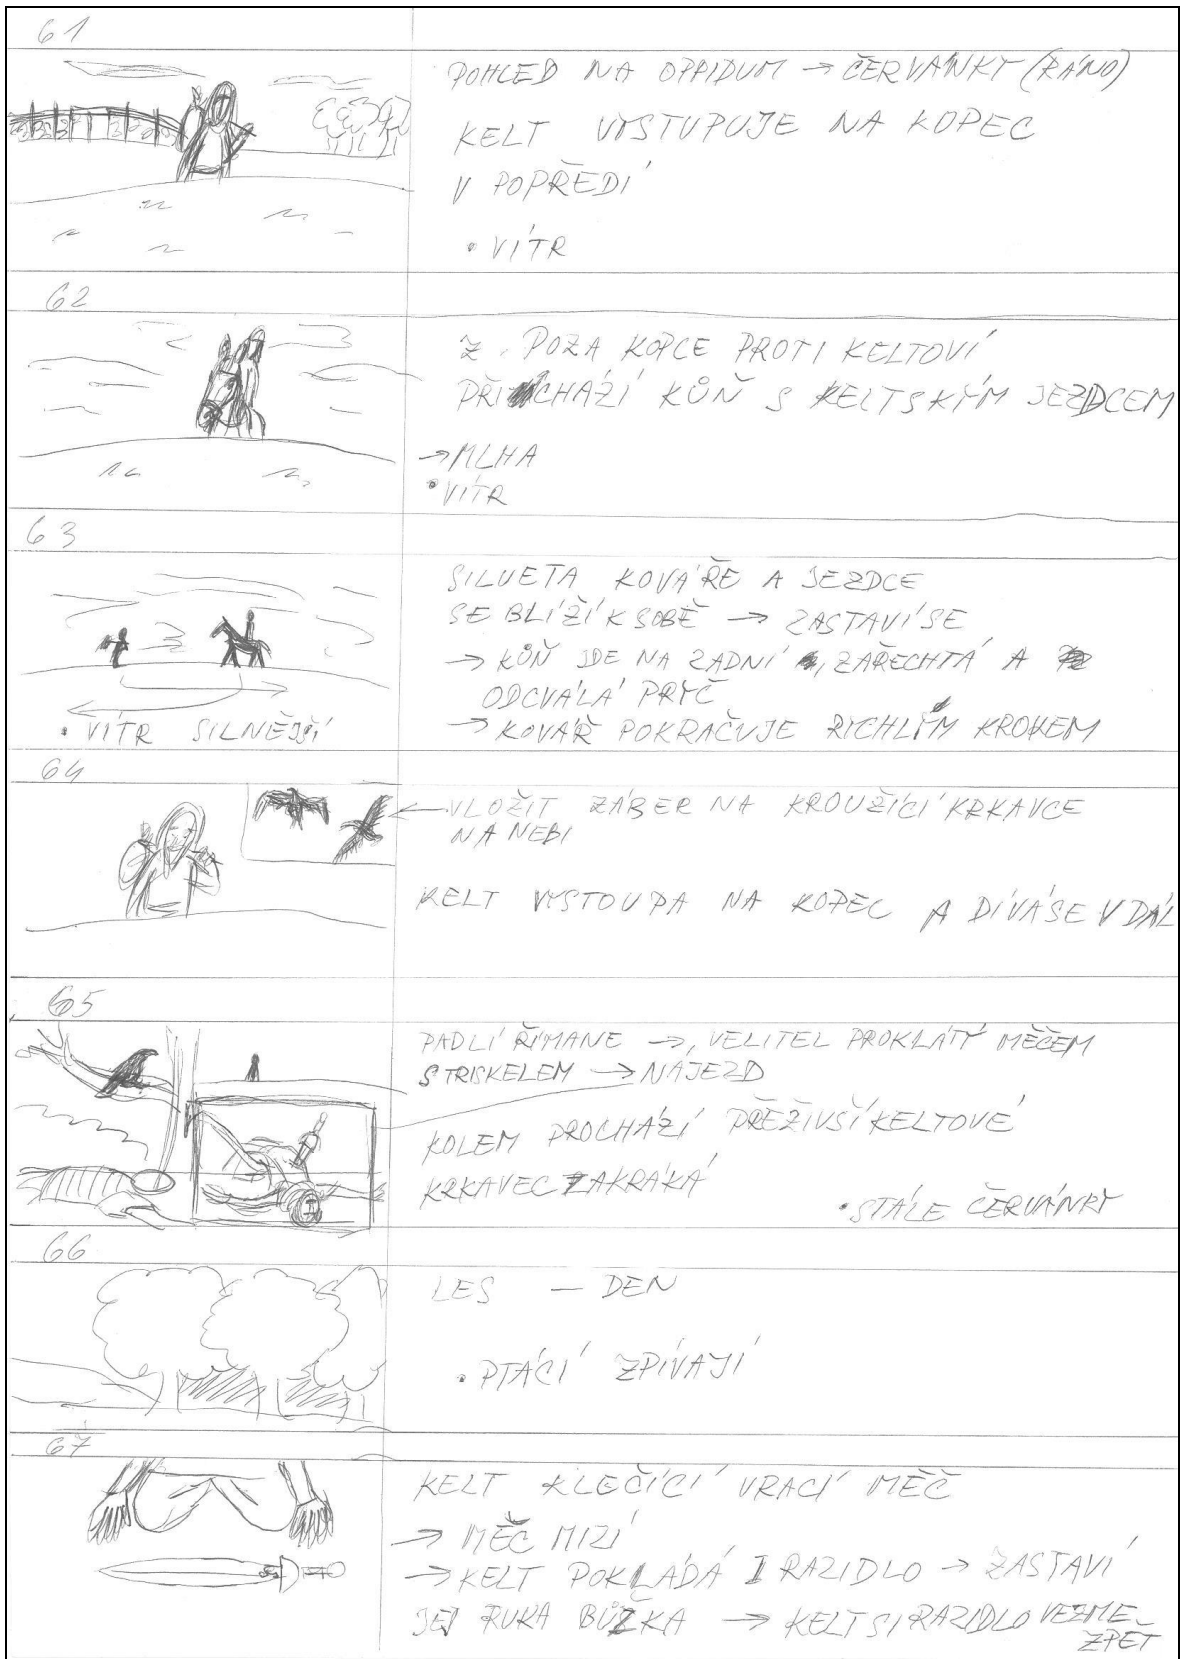 61
POHLED NA OPPIDUM → ČERVÁNKY (RÁNO)
KELT VYSTUPUJE NA KOPEC
V POPŘEDÍ
• VÍTR
62
Z POZA KOPCE PROTI KELTOVI
PŘICHÁZÍ KŮŇ S KELTSKÝM JEZDCEM
→ MLHA
• VÍTR
63
SILUETA KOVÁŘE A JEZDCE
SE BLÍŽÍ K SOBĚ → ZASTAVÍ SE
→ KŮŇ JDE NA ZADNÍ, ZAŘECHTÁ A
ODCVÁLÁ PRYČ
→ KOVÁŘ POKRAČUJE RICHLÝM KROKEM
• VÍTR SILNĚJŠÍ
64
← VLOŽIT ZÁBER NA KROUŽÍCÍ KRKAVCE
NA NEBI
KELT VYSTOUPA NA KOPEC A DÍVÁ SE V DÁL
65
PADLÍ ŘÍMANE → VELITEL PROKLÁTÝ MĚČEM
S TRISKELEM → NÁJEZD
KOLEM PROCHÁZÍ PŘEŽIVŠÍ KELTOVÉ
KRKAVEC ZAKRÁKÁ
• STÁLE ČERVÁNKY
66
LES — DEN
• PTÁCI ZPÍVAJÍ
67
KELT KLEČÍCÍ VRACÍ MĚČ
→ MĚČ MIZÍ
→ KELT POKLÁDÁ I RAZIDLO → ZASTAVÍ
JEJ RUKA BŮŽKA → KELT SI RAZIDLO VEZME
ZPĚT